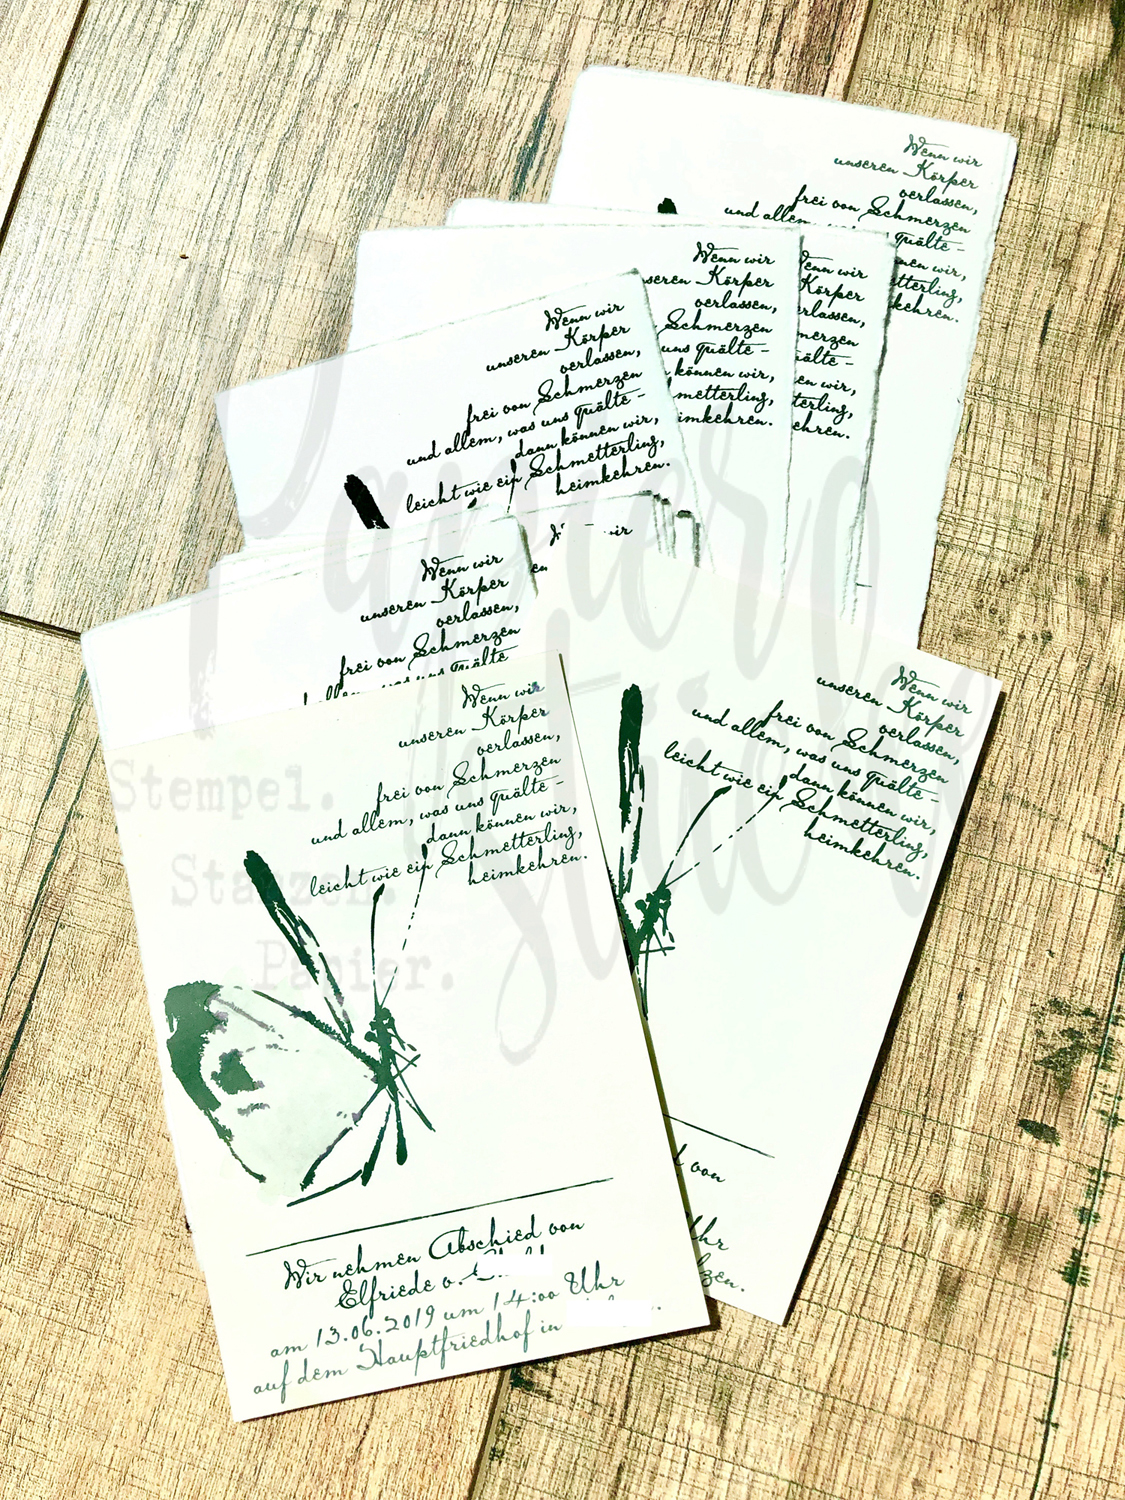 Wenn wir
unseren Körper
verlassen,
frei von Schmerzen
und allem
quälte -
nen wir,
tterling,
kehren.
Wenn wir
seren Körper
verlassen,
Schmerzen
uns quälte -
können wir,
metterling,
imkehren.
enn wir
Körper
erlassen,
merzen
uälte -
en wir,
terling,
ehren.
Wenn wir
unseren Körper
verlassen,
frei von Schmerzen
und allem, was uns quälte -
dann können wir,
leicht wie ein Schmetterling,
heimkehren.
wir
en
Wenn wir
unseren Körper
verlassen,
frei von Schmerzen
allem, was uns quälte
Wenn wir
unseren Körper
verlassen,
frei von Schmerzen
und allem, was uns quälte -
dann können wir,
leicht wie ein Schmetterling,
heimkehren.
Wir nehmen Abschied von
Elfriede v.
am 13.06.2019 um 14:00 Uhr
auf dem Hauptfriedhof in
Wenn wir
unseren Körper
verlassen,
frei von Schmerzen
und allem, was uns quälte -
dann können wir,
leicht wie ein Schmetterling,
heimkehren.
von
Uhr
zen.
Papiero
stücke
Stempel.
Stanzen.
Papier.